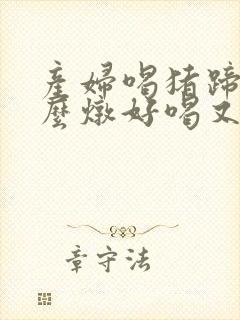 産婦喝猪蹄
麼燉好喝又
章守法